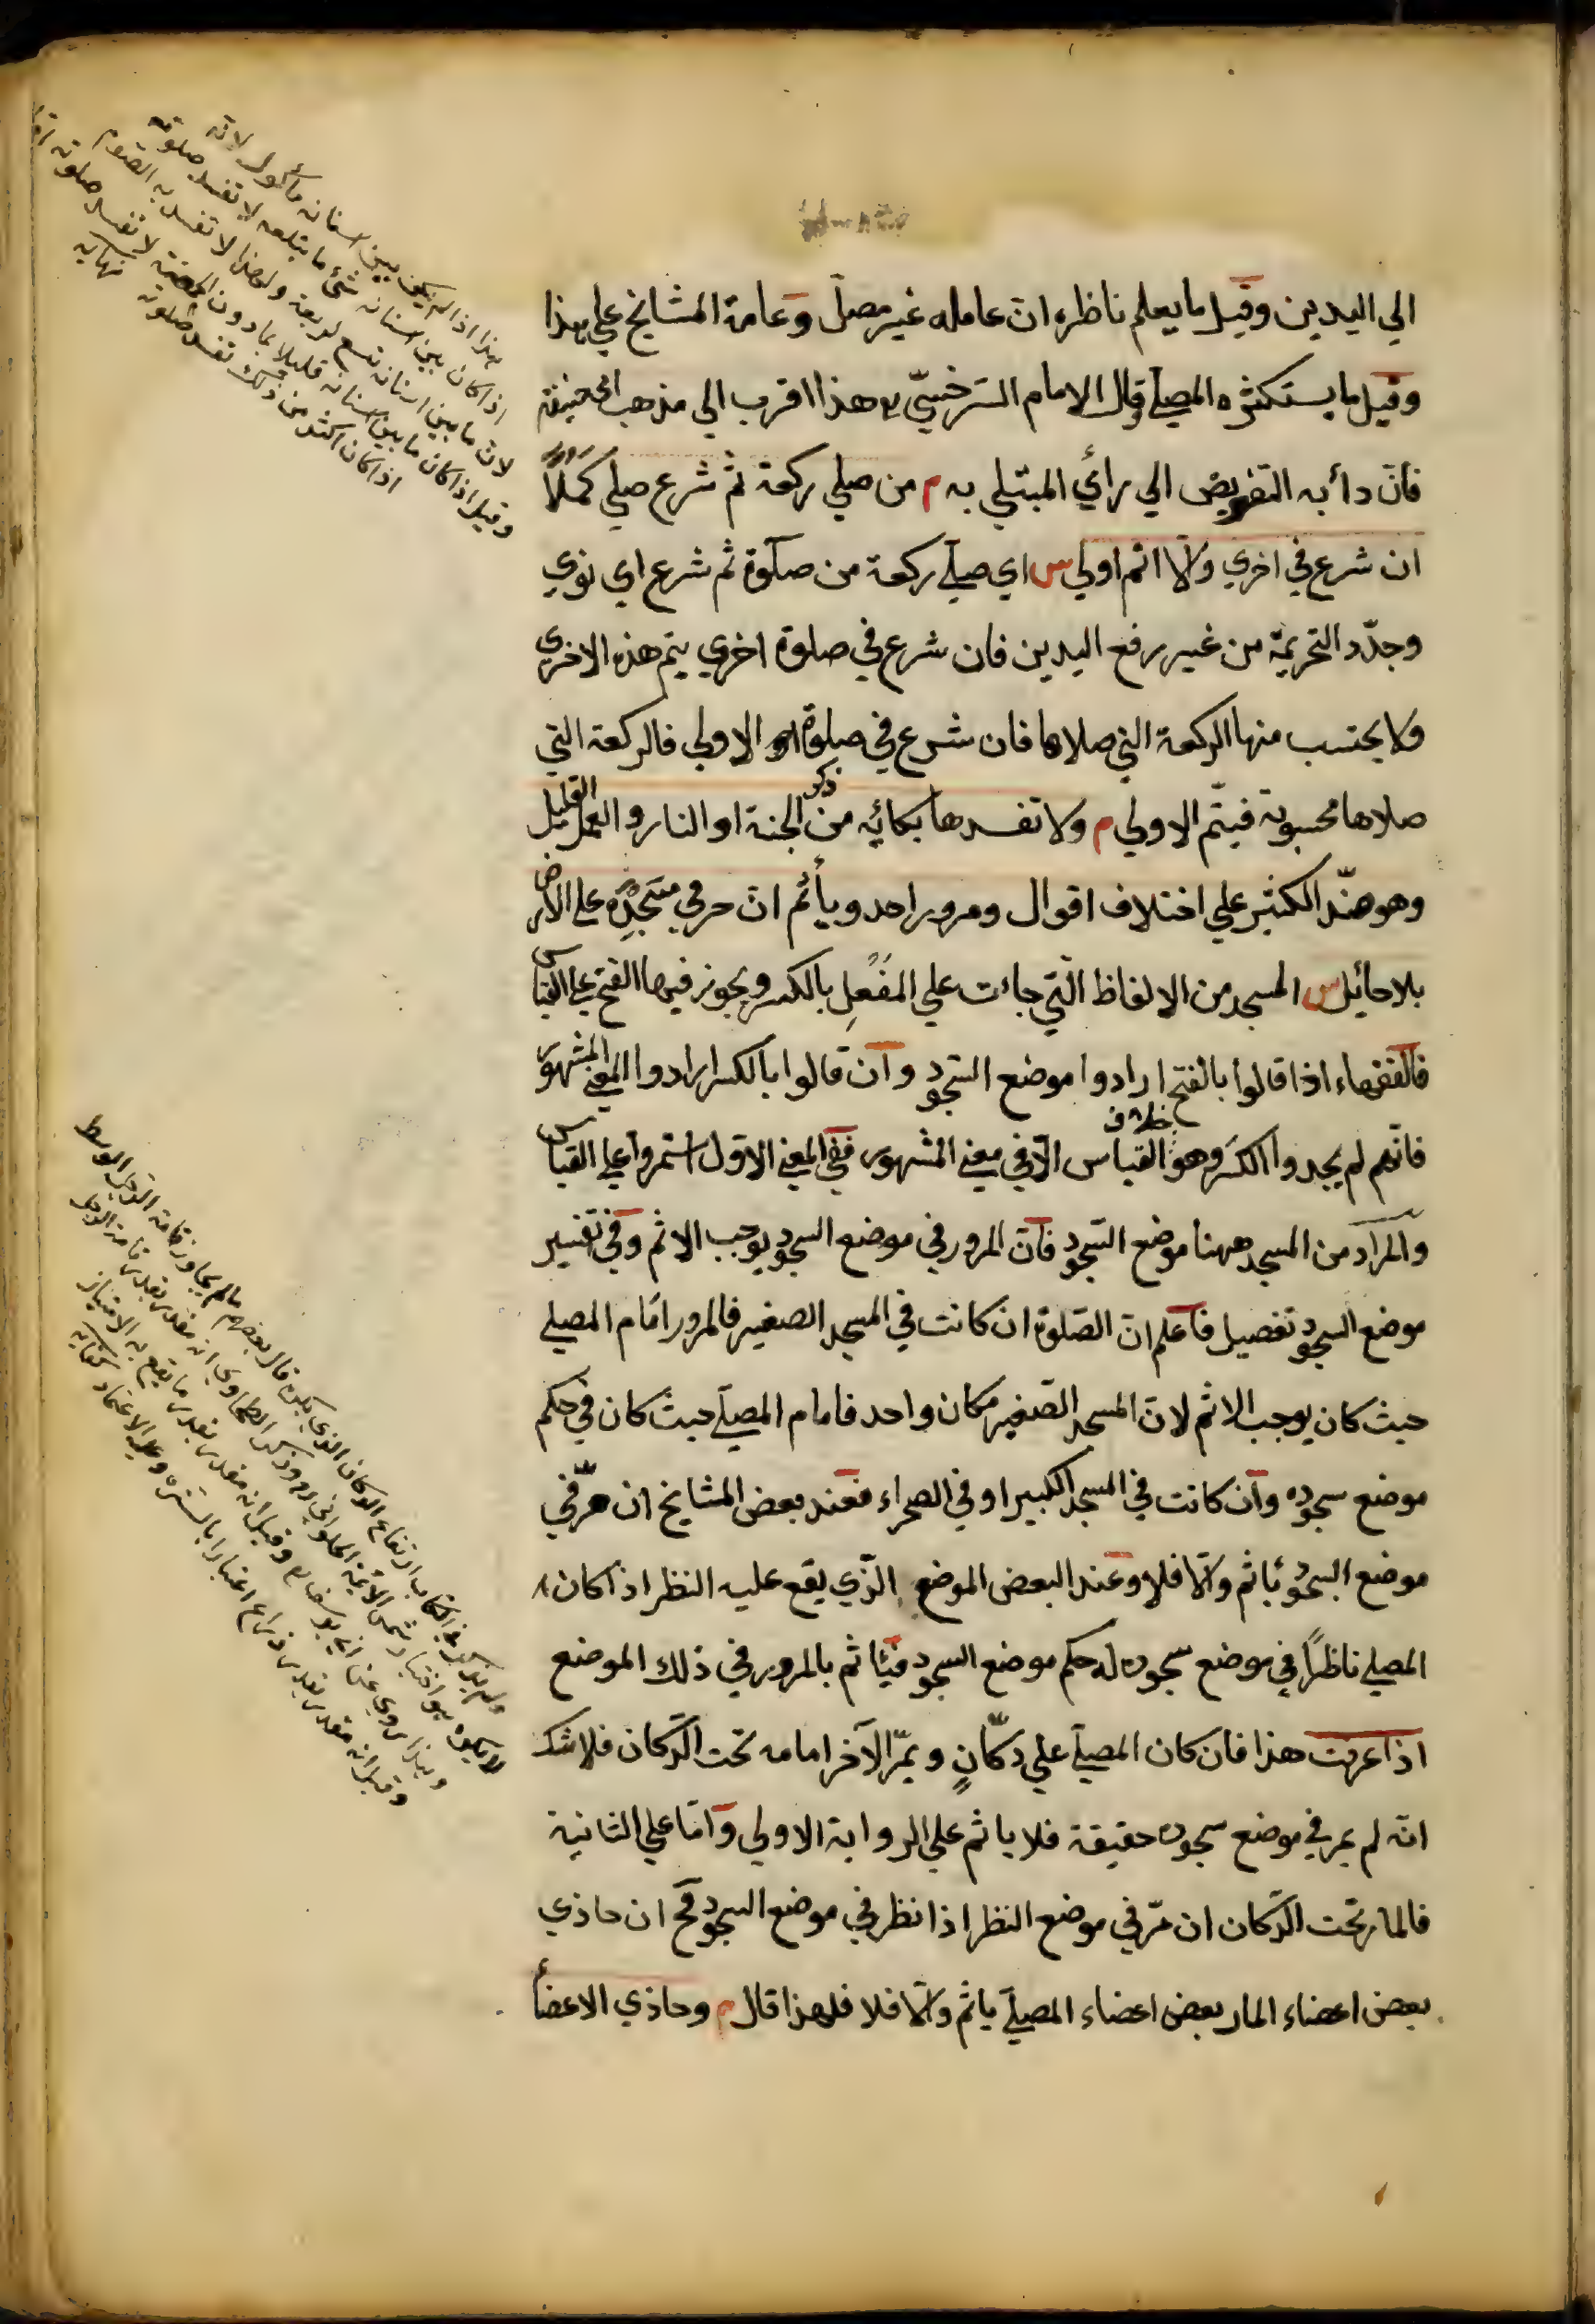 الي اليدين وقيل ما يعلم ناظره ان عامله غير مصل وعامة المشايخ علي هذا
وقيل ما يستكثره المصلي قال الامام السرخسي ره هذا اقرب الي مذهب ابي حنيفة
فان دأبه التفويض الي رأي المبتلي به م من صلي ركعة ثم شرع صلي كملا
ان شرع في اخري والا اتم اولي س اي صلي ركعة من صلوة ثم شرع اي نوي
وجدد التحريمة من غير رفع اليدين فان شرع في صلوة اخري يتم هذه الاخري
ولا يحتسب منها الركعة التي صلاها فان شرع في صلوة الاولي فالركعة التي
صلاها محسوبة فيتم الاولي م ولا تفسدها بكائه من ذكر الجنة او النار والعمل القليل
وهو ضد الكثير علي اختلاف اقوال ومرور احد ويأثم ان مر في مسجده علي الارض
بلا حائل س المسجد من الالفاظ التي جاءت علي المفعل بالكسر ويجوز فيها الفتح علي القياس
فالفقهاء اذا قالوا بالفتح ارادوا موضع السجود وان قالوا بالكسر ارادوا المعني المشهور
فانهم لم يجدوا الكسر وهو خلاف القياس الا في معني المشهور ففي المعني الاول استمروا علي القياس
والمراد من المسجد ههنا موضع السجود فان المرور في موضع السجود يوجب الاثم وفي تفسير
موضع السجود تفصيل فاعلم ان الصلوة ان كانت في المسجد الصغير فالمرور امام المصلي
حيث كان يوجب الاثم لان المسجد الصغير مكان واحد فامام المصلي حيث كان في حكم
موضع سجوده وان كانت في المسجد الكبير او في الصحراء فعند بعض المشايخ ان مر في
موضع السجود يأثم والا فلا وعند البعض الموضع الذي يقع عليه النظر اذا كان
المصلي ناظرا في موضع سجوده له حكم موضع السجود فيأثم بالمرور في ذلك الموضع
اذا عرفت هذا فان كان المصلي علي دكان ويمر الآخر امامه تحت الدكان فلا شك
انه لم يمر في موضع سجوده حقيقة فلا يأثم علي الرواية الاولي واما علي الثانية
فالمار تحت الدكان ان مر في موضع النظر اذا نظر في موضع السجود فح ان حاذي
بعض اعضاء المار بعض اعضاء المصلي يأثم والا فلا فلهذا قال م وحاذي الاعضاء
هذا اذا لم يكن بين اسنانه مأكول لانه
اذا كان بين اسنانه شئ ما يبتلعه لا تفسد صلوته
لان ما بين اسنانه تبع لريقه ولهذا لا تفسد به الصوم
وقيل اذا كان ما بين اسنانه قليلا بما دون الحمصة لا تفسد صلوته
اذا كان اكثر من ذلك تفسد صلوته نهايه
ارتفاع الدكان الذي يكره قال بعضهم ما لم يجاوز قامة الرجل الوسط
لا يكره هو اختيار شمس الائمة الحلواني ره وذكر الطحاوي انه مقدر بقدر قامة الرجل
وهذا روي عن ابي يوسف ره وقيل انه مقدر بقدر ما يقع به الامتياز
وقيل انه مقدر بقدر ذراع اعتبارا بالسترة وعليه الاعتماد كفايه